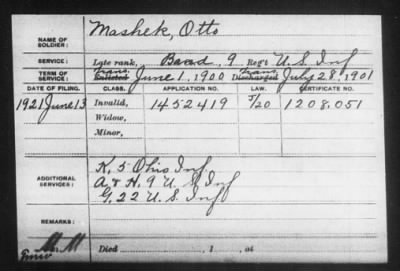 Mashek, Otto
NAME OF SOLDIER:
SERVICE: Late rank, Band, 9 Reg't U.S. Inf
TERM OF SERVICE: Trans. Enlisted June 1, 1900 Trans. Discharged July 28, 1901
DATE OF FILING. CLASS. APPLICATION NO. LAW. CERTIFICATE NO.
1921 June 13 Invalid, 1452419 J/20 1208.051
Widow,
Minor,
ADDITIONAL SERVICES: K, 5 Ohio Inf.
A & H, 9 U.S. Inf
G, 22 U.S. Inf
REMARKS:
Died 1 , at